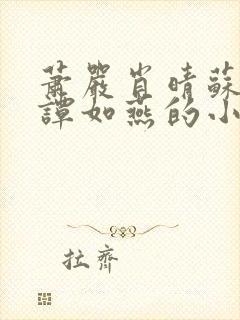 蕭嚴肖晴蘇
譚如燕的小
拉齊